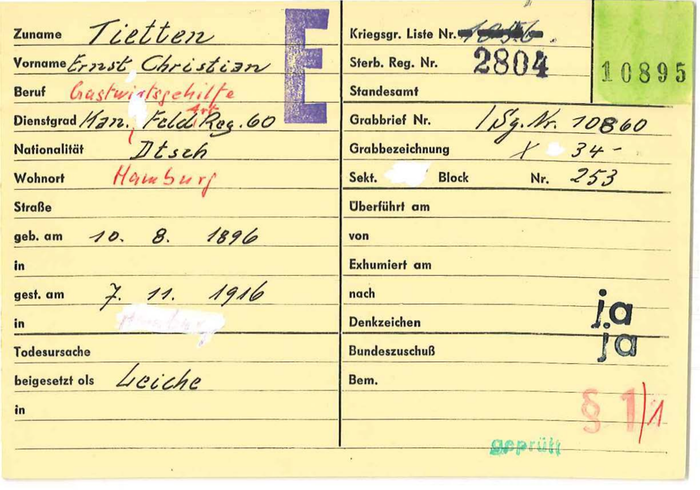 Zuname Tietten
Vorname Ernst Christian
Beruf Gastwirtsgehilfe
Dienstgrad Kan. Feld Art Reg. 60
Nationalität Dtsch
Wohnort Hamburg
Straße
geb. am 10. 8. 1896
in
gest. am 7. 11. 1916
in
Todesursache
beigesetzt als Leiche
in
E
Kriegsgr. Liste Nr.
Sterb. Reg. Nr. 2804
Standesamt
Grabbrief Nr. 10860
Grabbezeichnung X 34-
Sekt. Block Nr. 253
Überführt am
von
Exhumiert am
nach
Denkzeichen ja
Bundeszuschuß ja
Bem.
§ 1/1
geprüft
10895